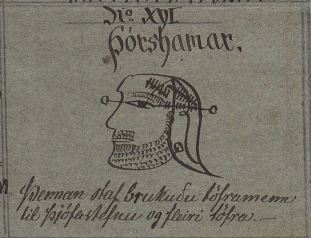 No XVI
Þórshamar.
Þennan staf brukuðu töframenn
til þjófastefnu og fleiri töfra.—